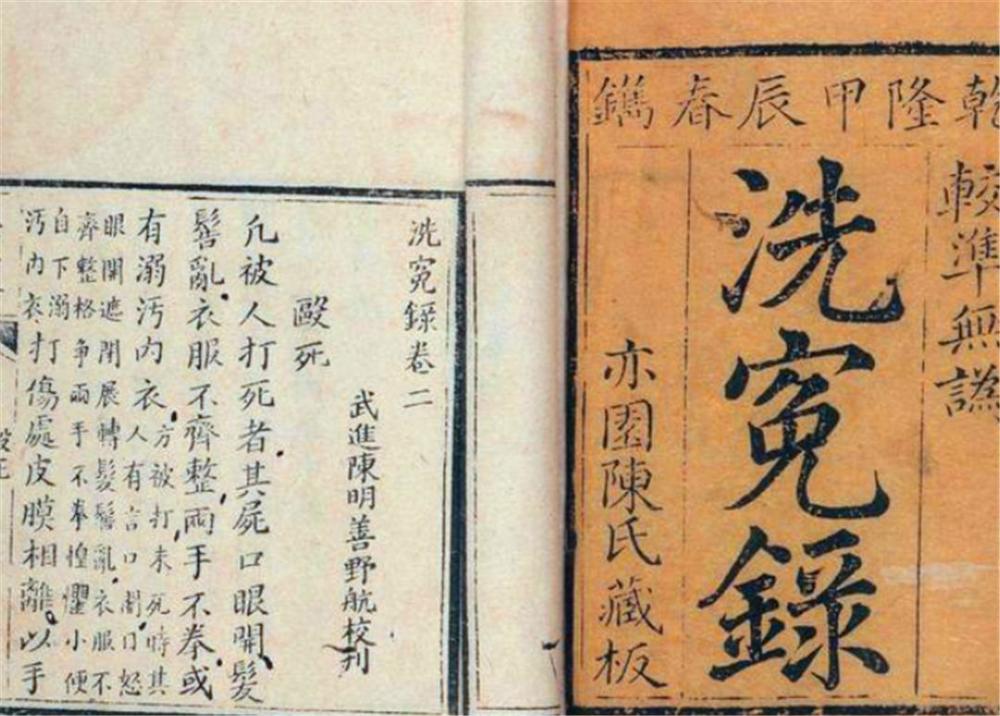 乾隆甲辰春鐫
較準無譌
洗寃錄
亦園陳氏藏板
洗寃錄卷二
武進陳明善野航校刊
毆死
凡被人打死者其屍口眼開髮
髻亂衣服不齊整兩手不拳或
有溺汚內衣
方被打未死時其
人有言口口怒
眼開遮閉展轉髮髻亂衣服不
齊整格爭兩手不拳惶懼小便
自下溺
汚內衣
打傷處皮膜相離以手